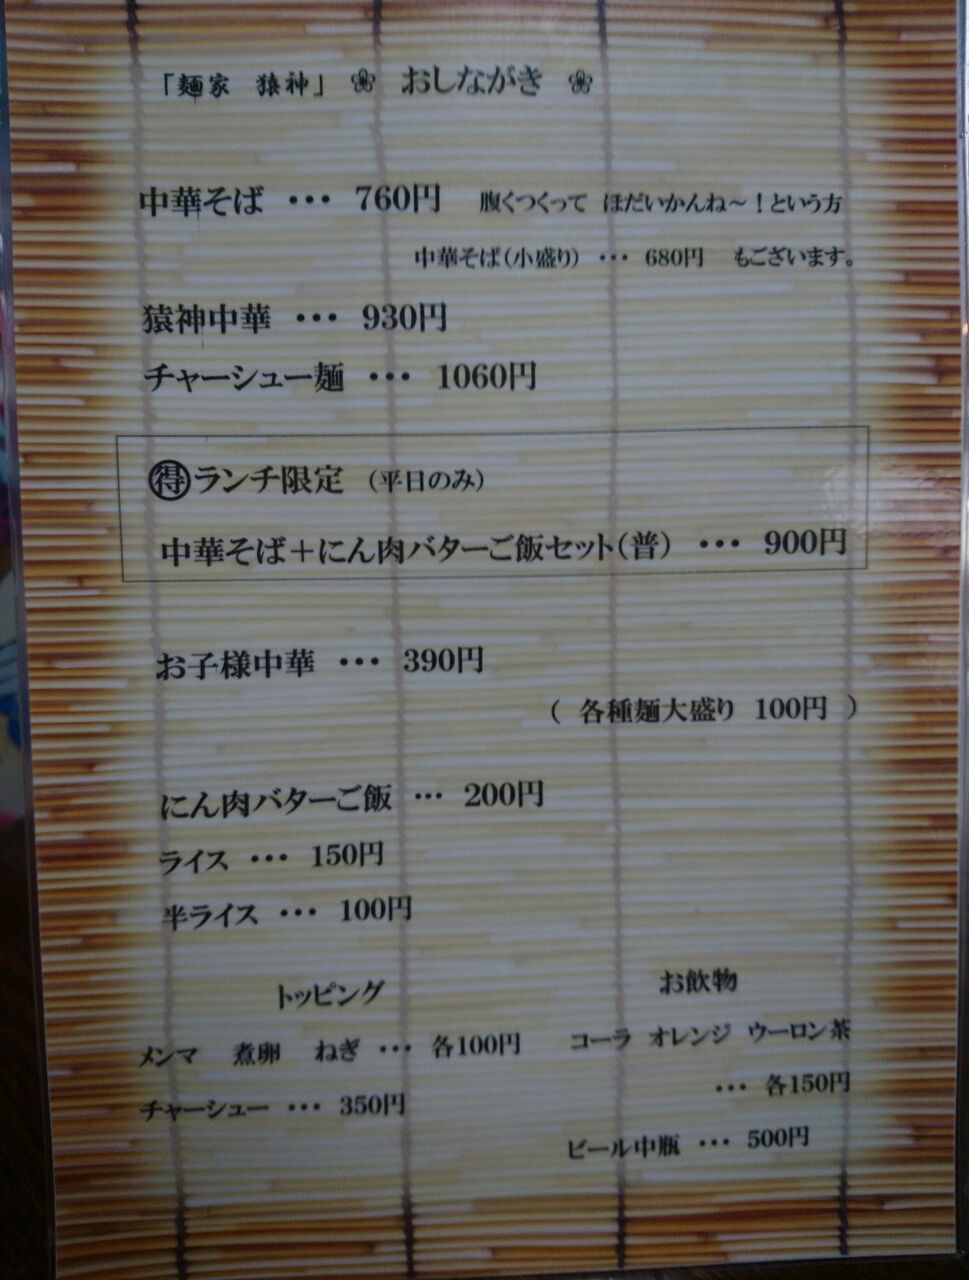 「麺家 猿神」 ❀ おしながき ❀
中華そば ・・・ 760円 腹くつくって ほだいかんね～！という方
中華そば（小盛り） ・・・ 680円 もございます。
猿神中華 ・・・ 930円
チャーシュー麺 ・・・ 1060円
㊝ランチ限定 （平日のみ）
中華そば＋にん肉バターご飯セット（普） ・・・ 900円
お子様中華 ・・・ 390円
（ 各種麺大盛り 100円 ）
にん肉バターご飯 ・・・ 200円
ライス ・・・ 150円
半ライス ・・・ 100円
トッピング
メンマ 煮卵 ねぎ ・・・ 各100円
チャーシュー ・・・ 350円
お飲物
コーラ オレンジ ウーロン茶
・・・ 各150円
ビール中瓶 ・・・ 500円